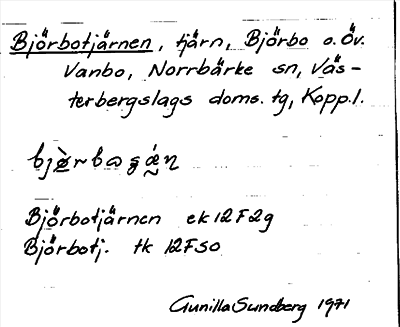 Björbotjärnen, tjärn, Björbo o. Öv.
Vanbo, Norrbärke sn, Väs-
terbergslags doms. tg, Kopp. l.
Björbotjärnen ek 12 F 2g
Björbotj. tk 12 F SO
Gunilla Sundberg 1971